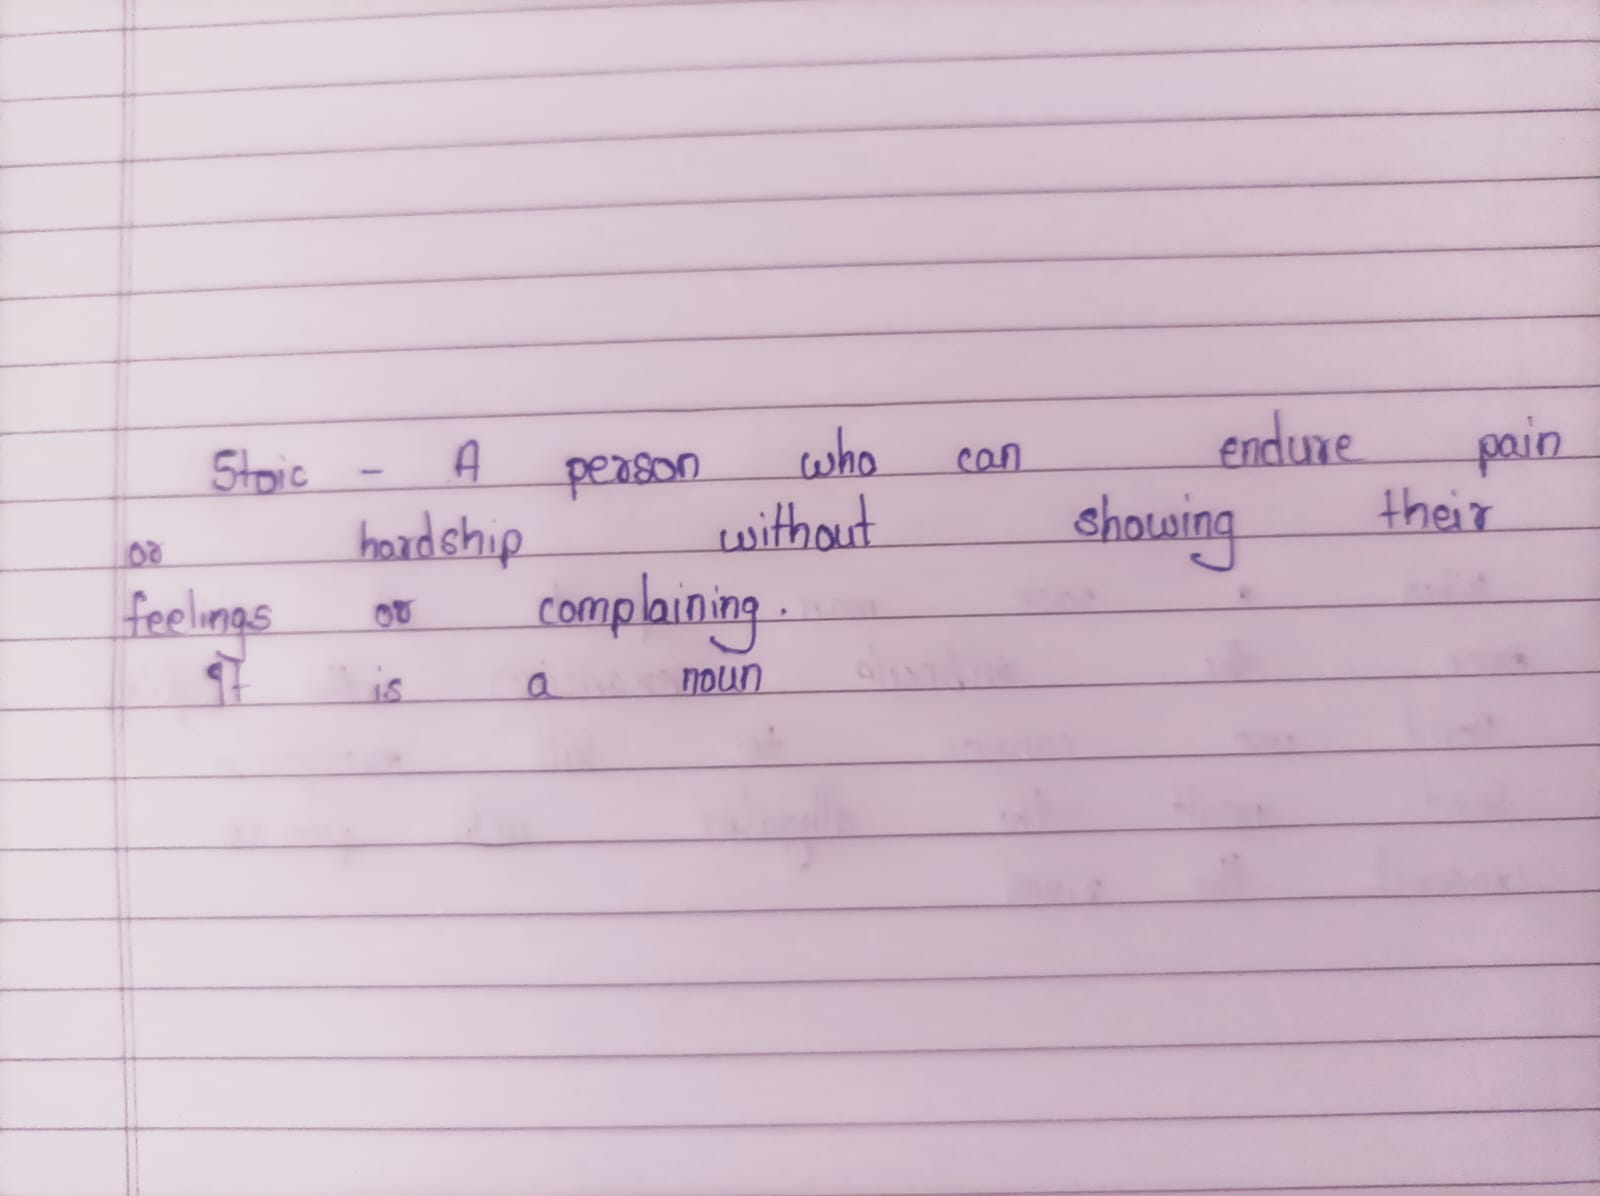 Stoic - A person who can endure pain
or hardship without showing their
feelings or complaining.
It is a noun